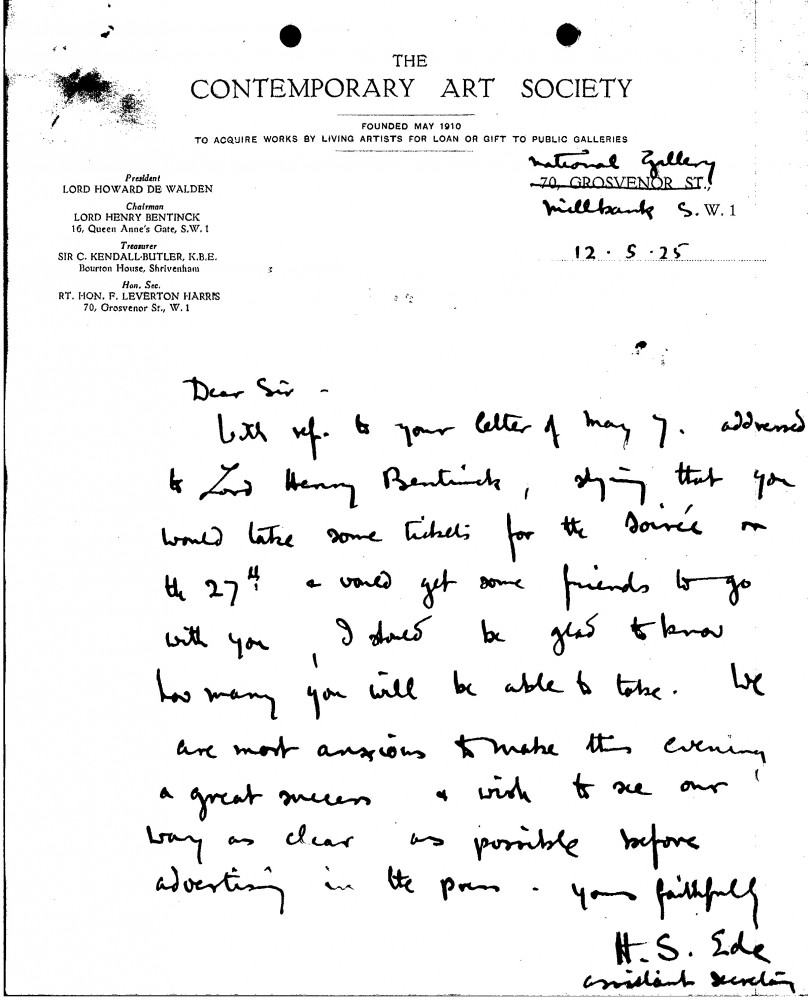 THE
CONTEMPORARY ART SOCIETY
FOUNDED MAY 1910
TO ACQUIRE WORKS BY LIVING ARTISTS FOR LOAN OR GIFT TO PUBLIC GALLERIES
National Gallery
70, GROSVENOR ST.,
Millbank S. W. 1
12 . 5 . 25
President
LORD HOWARD DE WALDEN
Chairman
LORD HENRY BENTINCK
16, Queen Anne's Gate, S.W. 1
Treasurer
SIR C. KENDALL-BUTLER, K.B.E.
Bourton House, Shrivenham
Hon. Sec.
RT. HON. F. LEVERTON HARRIS
70, Grosvenor St., W. 1
Dear Sir -
With ref. to your letter of May 7. addressed
to Lord Henry Bentinck, saying that you
would take some tickets for the Soirée on
the 27th & would get some friends to go
with you, I should be glad to know
how many you will be able to take. We
are most anxious to make this evening
a great success & wish to see our
way as clear as possible before
advertising in the press. Yours faithfully
H. S. Ede
assistant secretary